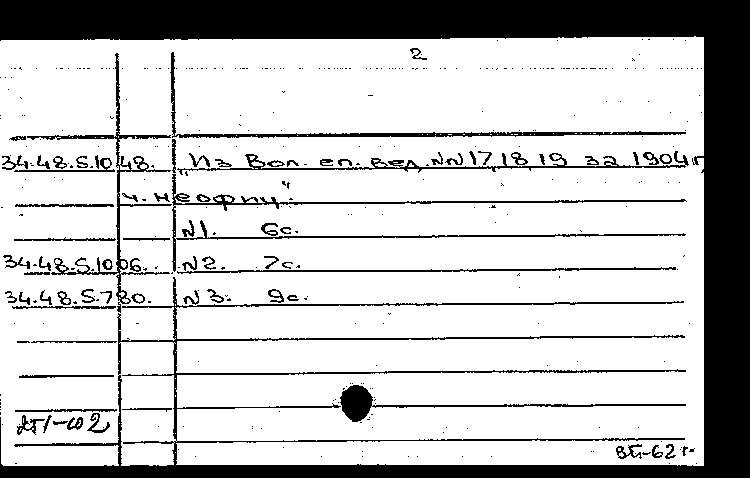 2
34.48.5.1048. „Из Вол. еп. вед. NN 17, 18, 19 за 1904 г.
ч. неофиц“.
N1. 6с.
34.48.5.1006. N2. 7с.
34.48.5.780. N3. 9с.